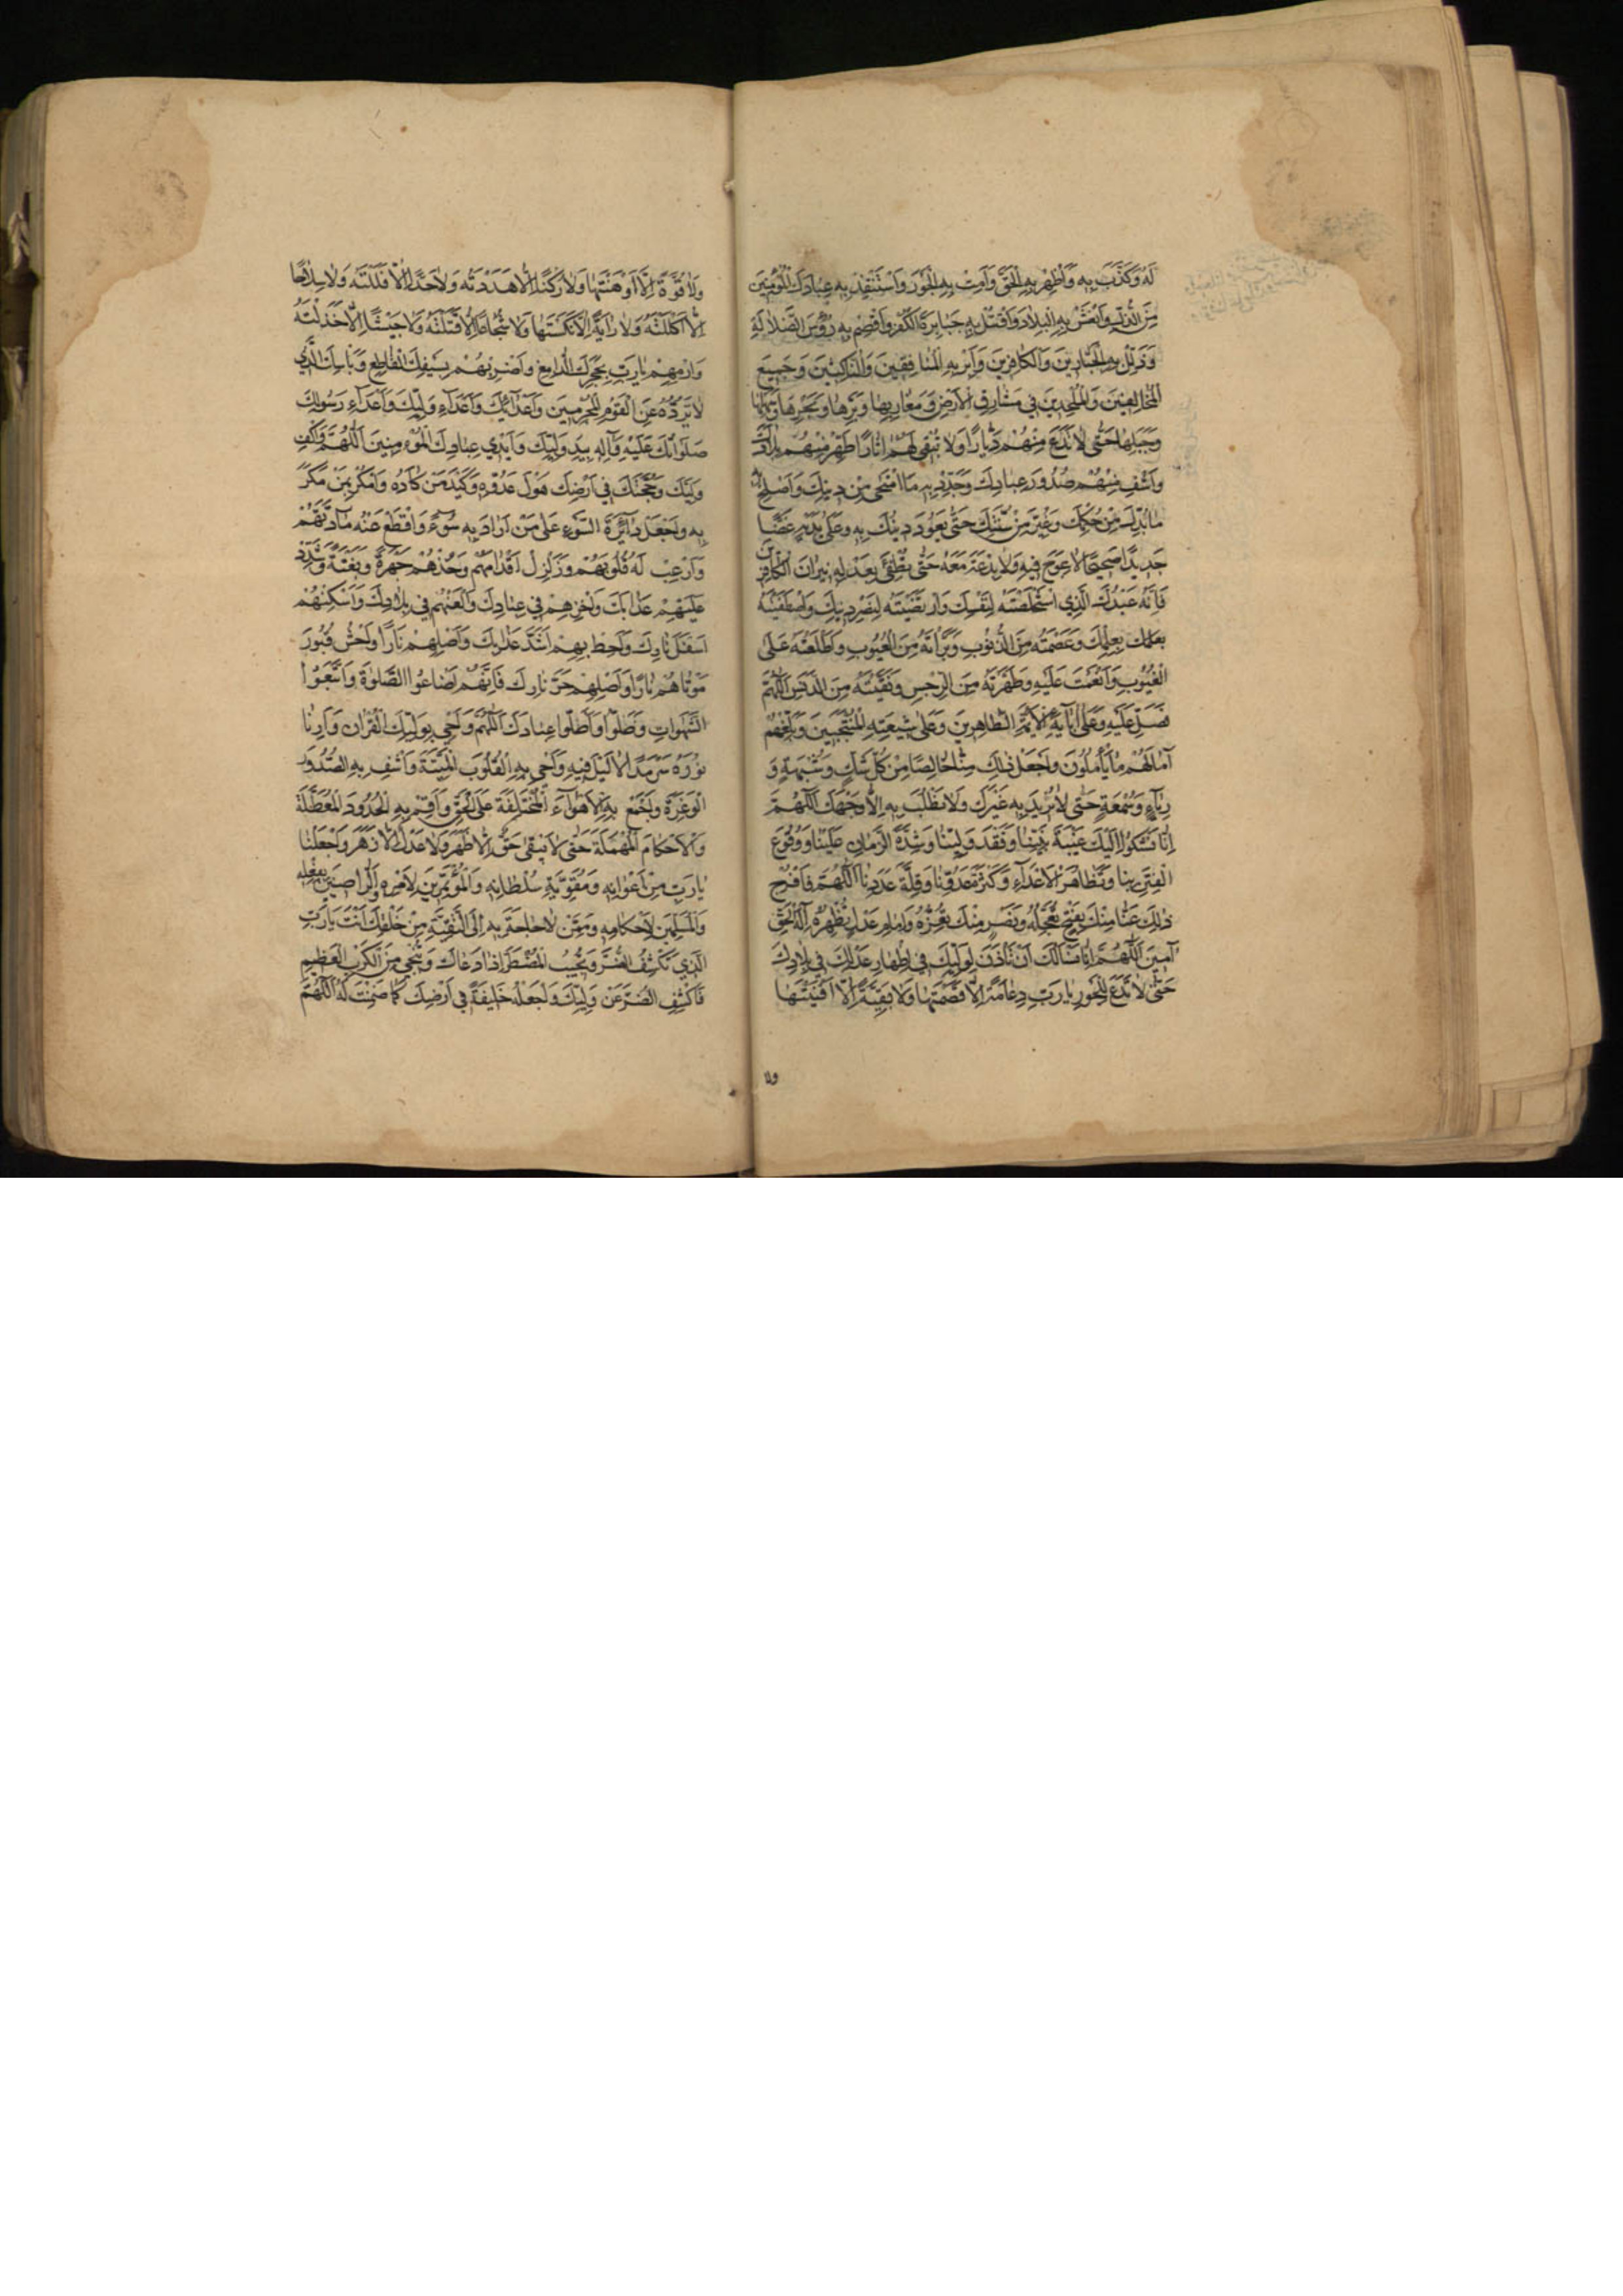 لَهُ وَكَذَّبَ بِهِ وَأَظْهِرْ بِهِ الْحَقَّ وَأَمِتْ بِهِ الْجَوْرَ وَاسْتَنْقِذْ بِهِ عِبَادَكَ الْمُؤْمِنِينَ
مِنَ الذُّلِّ وَانْعَشْ بِهِ الْبِلَادَ وَاقْتُلْ بِهِ جَبَابِرَةَ الْكُفْرِ وَاقْصِمْ بِهِ رُؤُسَ الضَّلَالَةِ
وَذَلِّلْ بِهِ الْجَبَّارِينَ وَالْكَافِرِينَ وَأَبِرْ بِهِ الْمُنَافِقِينَ وَالنَّاكِثِينَ وَجَمِيعَ
الْمُخَالِفِينَ وَالْمُلْحِدِينَ فِي مَشَارِقِ الْأَرْضِ وَمَغَارِبِهَا وَبَرِّهَا وَبَحْرِهَا وَسَهْلِهَا
وَجَبَلِهَا حَتَّى لَا تَدَعَ مِنْهُمْ دَيَّارًا وَلَا تُبْقِيَ لَهُمْ آثَارًا طَهِّرْ مِنْهُمْ بِلَادَكَ
وَاشْفِ مِنْهُمْ صُدُورَ عِبَادِكَ وَجَدِّدْ بِهِ مَا امْتَحَى مِنْ دِينِكَ وَأَصْلِحْ بِهِ
مَا بُدِّلَ مِنْ حُكْمِكَ وَغُيِّرَ مِنْ سُنَّتِكَ حَتَّى يَعُودَ دِينُكَ بِهِ وَعَلَى يَدَيْهِ غَضًّا
جَدِيدًا صَحِيحًا لَا عِوَجَ فِيهِ وَلَا بِدْعَةَ مَعَهُ حَتَّى تُطْفِئَ بِعَدْلِهِ نِيرَانَ الْكَافِرِينَ
فَإِنَّهُ عَبْدُكَ الَّذِي اسْتَخْلَصْتَهُ لِنَفْسِكَ وَارْتَضَيْتَهُ لِنَصْرِ دِينِكَ وَاصْطَفَيْتَهُ
بِعِلْمِكَ وَعَصَمْتَهُ مِنَ الذُّنُوبِ وَبَرَّأْتَهُ مِنَ الْعُيُوبِ وَأَطْلَعْتَهُ عَلَى
الْغُيُوبِ وَأَنْعَمْتَ عَلَيْهِ وَطَهَّرْتَهُ مِنَ الرِّجْسِ وَنَقَّيْتَهُ مِنَ الدَّنَسِ اللّٰهُمَّ
فَصَلِّ عَلَيْهِ وَعَلَى آبَائِهِ الْأَئِمَّةِ الطَّاهِرِينَ وَعَلَى شِيعَتِهِ الْمُنْتَجَبِينَ وَبَلِّغْهُمْ
آمَالَهُمْ مَا يَأْمُلُونَ وَاجْعَلْ ذٰلِكَ مِنَّا خَالِصًا مِنْ كُلِّ شَكٍّ وَشُبْهَةٍ وَ
رِيَآءٍ وَسُمْعَةٍ حَتَّى لَا نُرِيدَ بِهِ غَيْرَكَ وَلَا نَطْلُبَ بِهِ إِلَّا وَجْهَكَ اللّٰهُمَّ
إِنَّا نَشْكُو إِلَيْكَ غَيْبَةَ نَبِيِّنَا وَفَقْدَ وَلِيِّنَا وَشِدَّةَ الزَّمَانِ عَلَيْنَا وَوُقُوعَ
الْفِتَنِ بِنَا وَتَظَاهُرَ الْأَعْدَآءِ وَكَثْرَةَ عَدُوِّنَا وَقِلَّةَ عَدَدِنَا اللّٰهُمَّ فَافْرُجْ
ذٰلِكَ عَنَّا مِنْكَ بِفَتْحٍ تُعَجِّلُهُ وَنَصْرٍ مِنْكَ تُعِزُّهُ وَإِمَامِ عَدْلٍ تُظْهِرُهُ إِلٰهَ الْحَقِّ
آمِينَ اللّٰهُمَّ إِنَّا نَسْأَلُكَ أَنْ تَأْذَنَ لِوَلِيِّكَ فِي إِظْهَارِ عَدْلِكَ فِي بِلَادِكَ
حَتَّى لَا تَدَعَ لِلْجَوْرِ يَا رَبِّ دِعَامَةً إِلَّا قَصَمْتَهَا وَلَا بَقِيَّةً إِلَّا أَفْنَيْتَهَا
ولا
وَلَا قُوَّةً إِلَّا أَوْهَنْتَهَا وَلَا رُكْنًا إِلَّا هَدَدْتَهُ وَلَا حَدًّا إِلَّا فَلَلْتَهُ وَلَا سِلَاحًا
إِلَّا أَكْلَلْتَهُ وَلَا رَايَةً إِلَّا نَكَسْتَهَا وَلَا شُجَاعًا إِلَّا قَتَلْتَهُ وَلَا جَيْشًا إِلَّا خَذَلْتَهُ
وَارْمِهِمْ يَا رَبِّ بِحَجَرِكَ الدَّامِغِ وَاضْرِبْهُمْ بِسَيْفِكَ الْقَاطِعِ وَبَأْسِكَ الَّذِي
لَا تَرُدُّهُ عَنِ الْقَوْمِ الْمُجْرِمِينَ وَأَعْدَائِكَ وَأَعْدَآءِ وَلِيِّكَ وَأَعْدَآءِ رَسُولِكَ
صَلَوَاتُكَ عَلَيْهِ وَآلِهِ بِيَدِ وَلِيِّكَ وَأَيْدِي عِبَادِكَ الْمُؤْمِنِينَ اللّٰهُمَّ وَاكْفِ
وَلِيَّكَ وَحُجَّتَكَ فِي أَرْضِكَ هَوْلَ عَدُوِّهِ وَكَيْدَ مَنْ كَادَهُ وَامْكُرْ بِمَنْ مَكَرَ
بِهِ وَاجْعَلْ دَائِرَةَ السَّوْءِ عَلَى مَنْ أَرَادَ بِهِ سُوءً وَاقْطَعْ عَنْهُ مَادَّتَهُمْ
وَأَرْعِبْ لَهُ قُلُوبَهُمْ وَزَلْزِلْ أَقْدَامَهُمْ وَخُذْهُمْ جَهْرَةً وَبَغْتَةً وَشَدِّدْ
عَلَيْهِمْ عَذَابَكَ وَاخْزِهِمْ فِي عِبَادِكَ وَالْعَنْهُمْ فِي بِلَادِكَ وَأَسْكِنْهُمْ
أَسْفَلَ نَارِكَ وَأَحِطْ بِهِمْ أَشَدَّ عَذَابِكَ وَأَصْلِهِمْ نَارًا وَاحْشُ قُبُورَ
مَوْتَاهُمْ نَارًا وَأَصْلِهِمْ حَرَّ نَارِكَ فَإِنَّهُمْ أَضَاعُوا الصَّلٰوةَ وَاتَّبَعُوا
الشَّهَوَاتِ وَضَلُّوا وَأَضَلُّوا عِبَادَكَ اللّٰهُمَّ وَأَحْيِ بِوَلِيِّكَ الْقُرْآنَ وَأَرِنَا
نُورَهُ سَرْمَدًا لَا لَيْلَ فِيهِ وَأَحْيِ بِهِ الْقُلُوبَ الْمَيِّتَةَ وَاشْفِ بِهِ الصُّدُورَ
الْوَغِرَةَ وَاجْمَعْ بِهِ الْأَهْوَآءَ الْمُخْتَلِفَةَ عَلَى الْحَقِّ وَأَقِمْ بِهِ الْحُدُودَ الْمُعَطَّلَةَ
وَالْأَحْكَامَ الْمُهْمَلَةَ حَتَّى لَا يَبْقَى حَقٌّ إِلَّا ظَهَرَ وَلَا عَدْلٌ إِلَّا زَهَرَ وَاجْعَلْنَا
يَا رَبِّ مِنْ أَعْوَانِهِ وَمُقَوِّيَةِ سُلْطَانِهِ وَالْمُؤْتَمِرِينَ لِأَمْرِهِ وَالرَّاضِينَ بِفِعْلِهِ
وَالْمُسَلِّمِينَ لِأَحْكَامِهِ وَمِمَّنْ لَا حَاجَةَ بِهِ إِلَى التَّقِيَّةِ مِنْ خَلْقِكَ أَنْتَ يَا رَبِّ
الَّذِي تَكْشِفُ الضُّرَّ وَتُجِيبُ الْمُضْطَرَّ إِذَا دَعَاكَ وَتُنْجِي مِنَ الْكَرْبِ الْعَظِيمِ
فَاكْشِفِ الضُّرَّ عَنْ وَلِيِّكَ وَاجْعَلْهُ خَلِيفَةً فِي أَرْضِكَ كَمَا ضَمِنْتَ لَهُ اللّٰهُمَّ